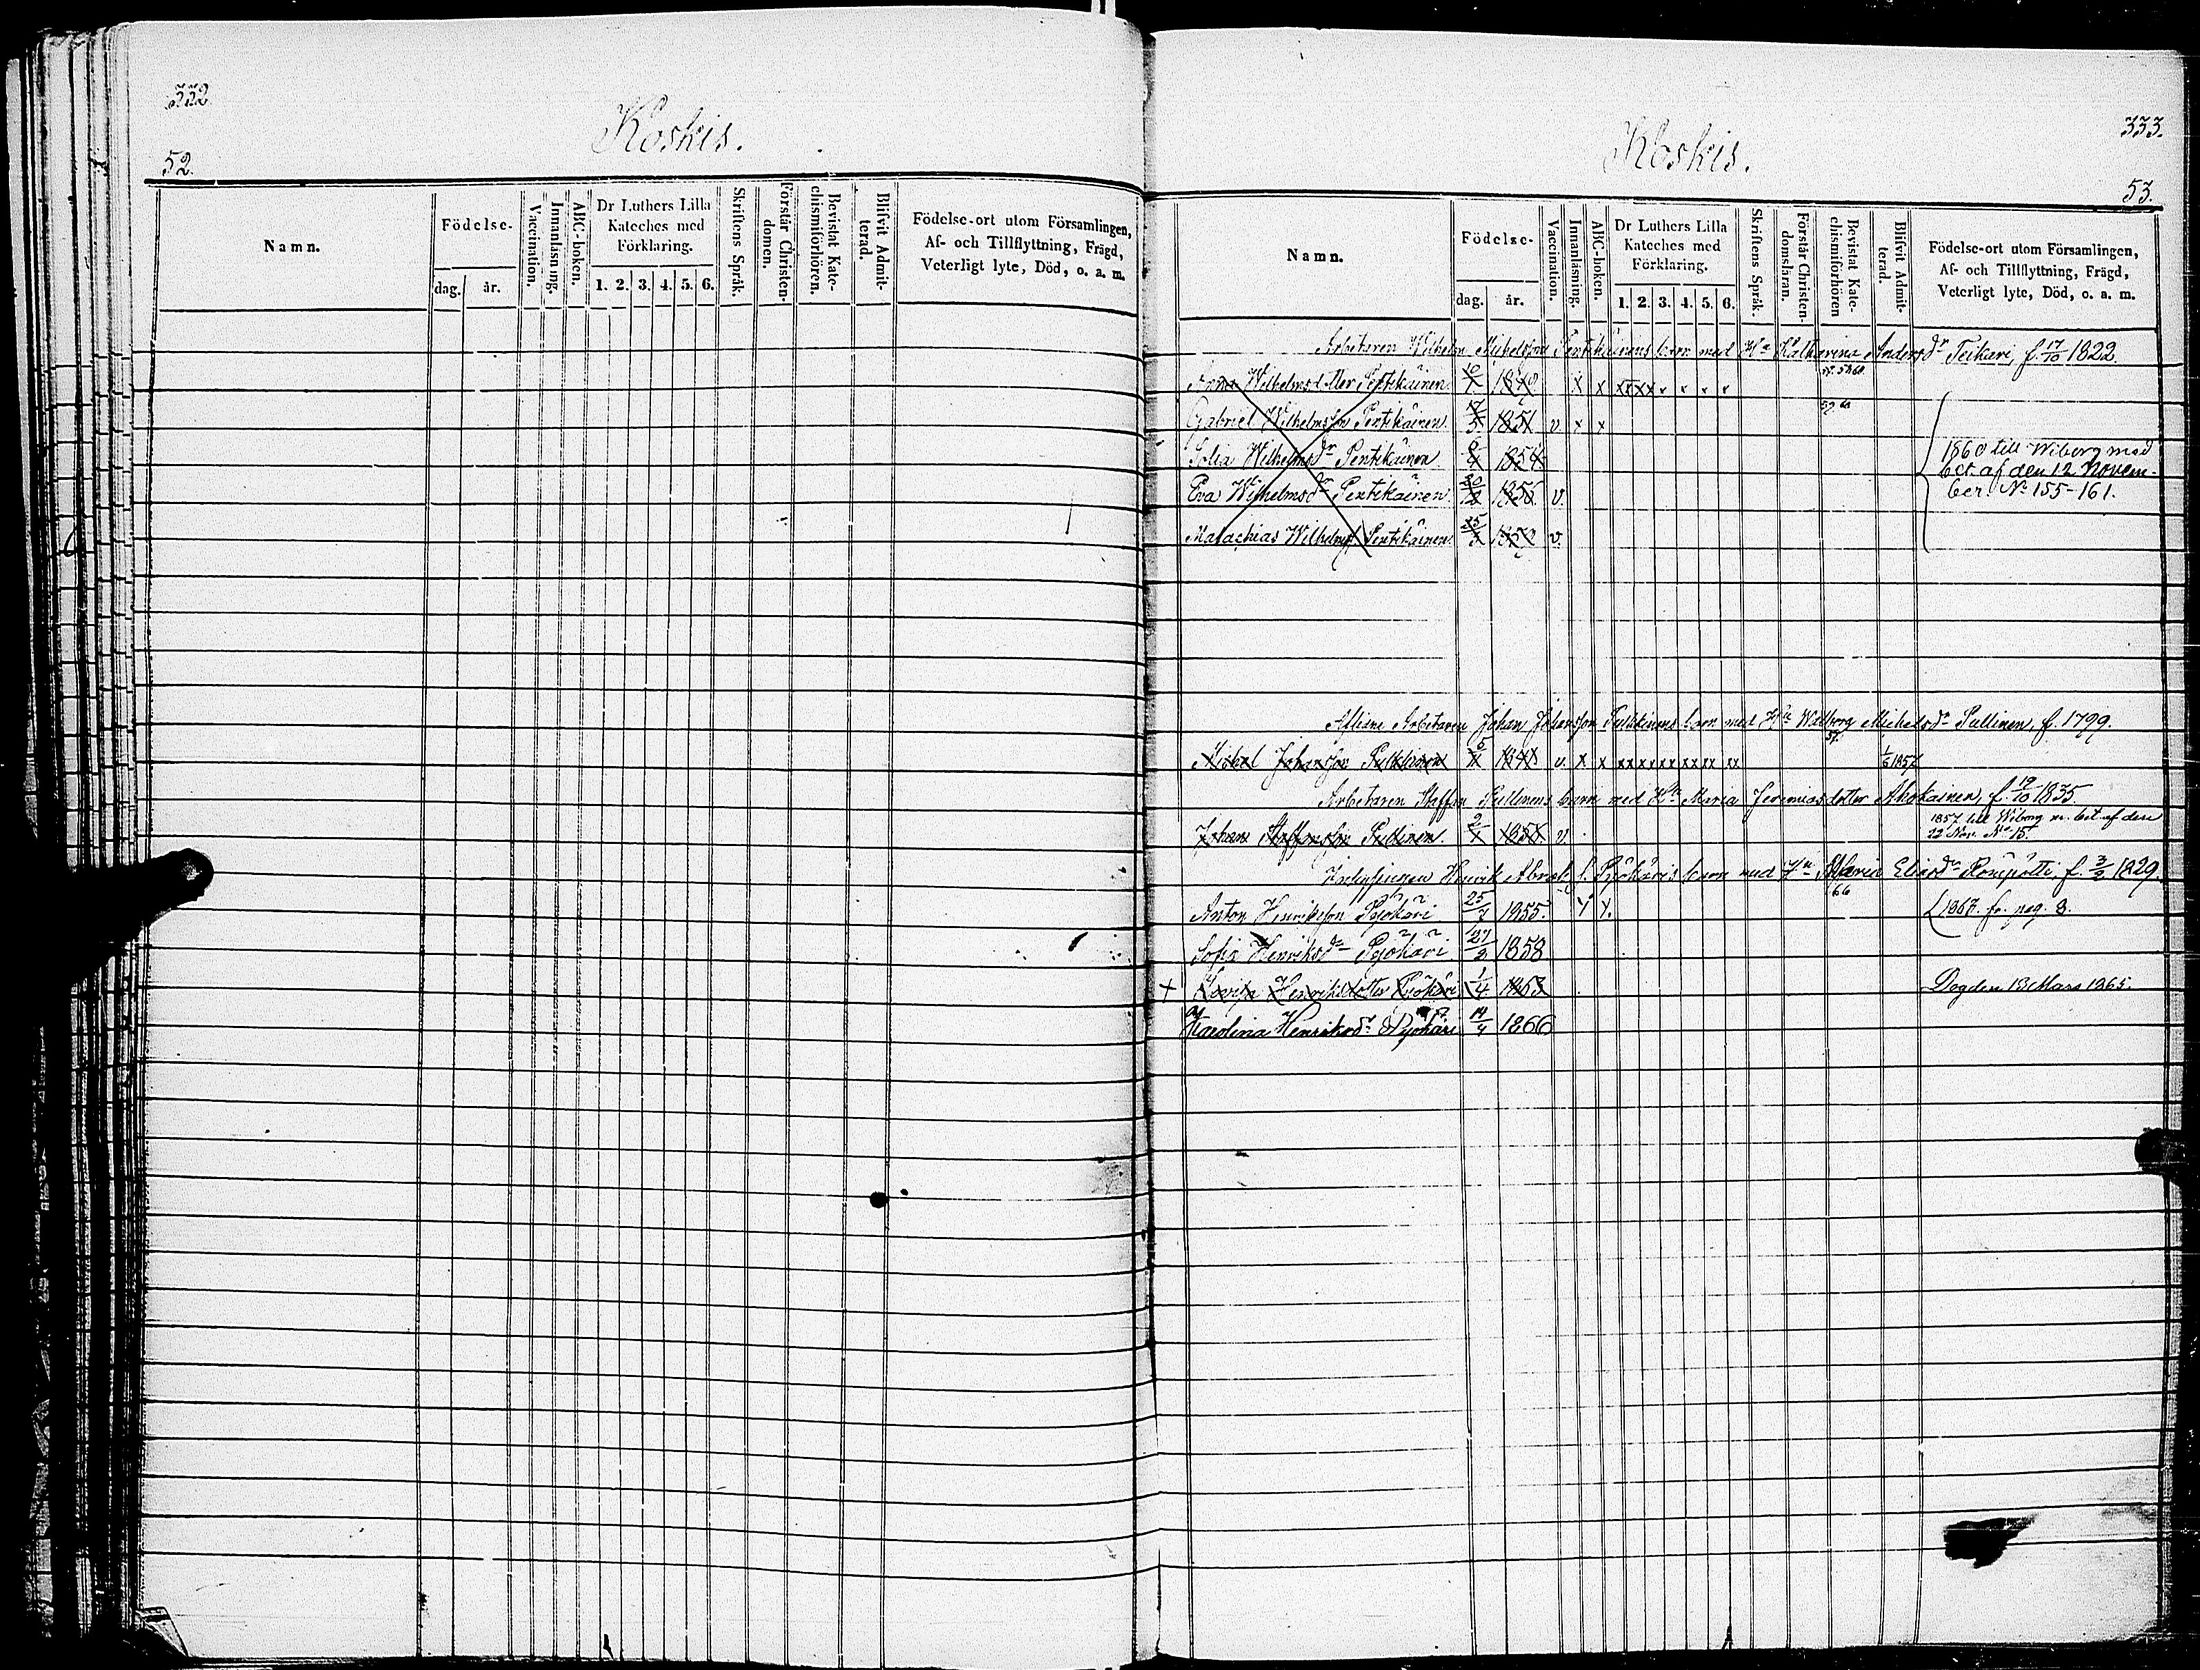 332.
Koskis.
52.
Namn.
Födelse-
dag. år.
Vaccination.
Innanläsning.
ABC-boken.
Dr Luthers Lilla
Kateches med
Förklaring.
1. 2. 3. 4. 5. 6.
Skriftens Språk.
Förstår Christen-
domen.
Bevistat Kate-
chismiförhören.
Blifvit Admit-
terad.
Födelse-ort utom Församlingen,
Af- och Tillflyttning, Frägd,
Veterligt lyte, Död, o. a. m.
333.
Koskis.
53.
Namn.
Födelse-
dag. år.
Vaccination.
Innanläsning.
ABC-boken.
Dr Luthers Lilla
Kateches med
Förklaring.
1. 2. 3. 4. 5. 6.
Skriftens Språk.
Förstår Christen-
domsläran.
Bevistat Kate-
chismiförhören
Blifvit Admit-
terad.
Födelse-ort utom Församlingen,
Af- och Tillflyttning, Frägd,
Veterligt lyte, Död, o. a. m.
Arbetaren Wilhelm Michelsson Pentikäinens barn med Hu Katharina Andersdr Teikari, f. 17/10 1822.
Anna Wilhelmsd:tter Pentikäinen x x x x x x x x x x
Gabriel Wilhelmsson Pentikäinen. 17/5 1851 v. x x 59. 60
Sofia Wilhelmsdr Pentikäinen 1854
Eva Wilhelmsdr Pentikäinen v.
Malachias Wilhelmss Pentikäinen v.
1860 till Wiborg med
bet. af den 12 Novem-
ber. No 155-161.
Aflidne Arbetaren Johan Johansson Pulkkinens barn med Hu Walborg Michelsdr Pullinen, f. 1799.
Michel Johansson Pulkkinen v. x x xx xx xx xx xx xx 1/6 1857
Arbetaren Staffan Pullinens barn med Hu Maria Jeremiasdotter Ahokainen, f. 19/10 1835
Johan Staffansson Pullinen. v.
1857 till Wiborg m. bet. af den
22 Nov. No 15.
Inhysingen Henrik Abrah. s. Pyökäris barn med Hu Maria Eliasdr Römpötti, f. 3/2 1829.
Anton Henriksson Pyökäri 25/7 1855. Y Y. 66 1867. fr. pag. 8.
Sofia Henriksdr Pyökäri 27/2 1858
+ Lovisa Henriksdotter Pyökäri 1/4 1863 Dog den 13 Mars 1865.
Karolina Henriksdr Pyökäri 14/4 1866